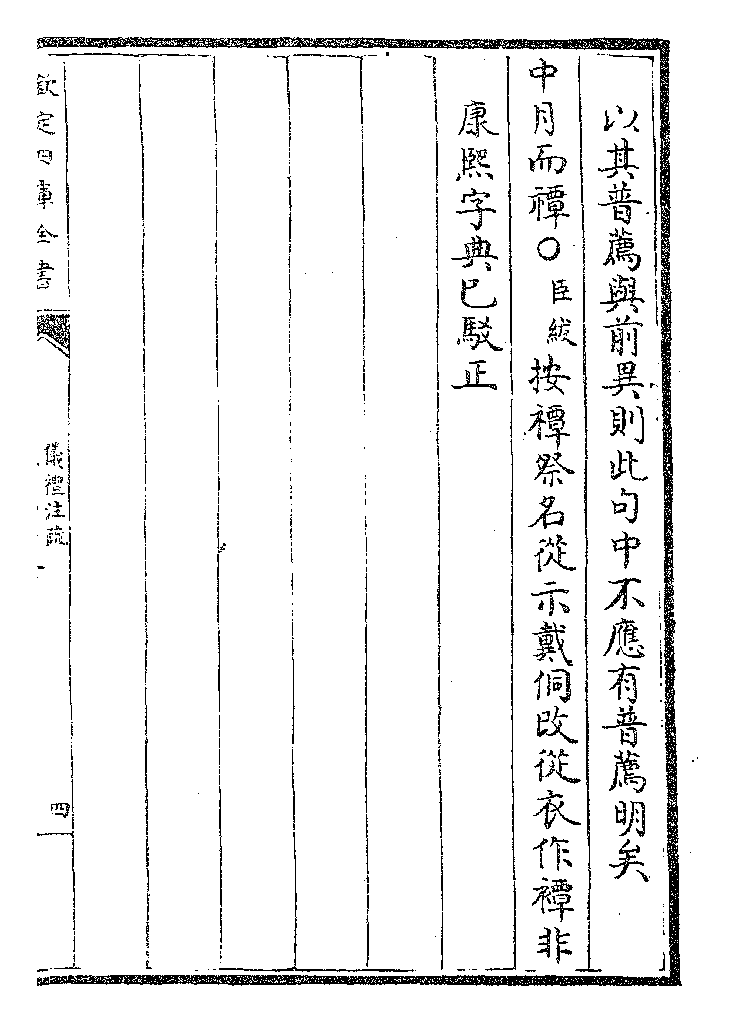 以其普薦與前異則此句中不應有普薦明矣
中月而禫○臣紱按禫祭名從示戴侗改從衣作襢非
康熙字典已駁正
欽定四庫全書
儀禮注疏
四